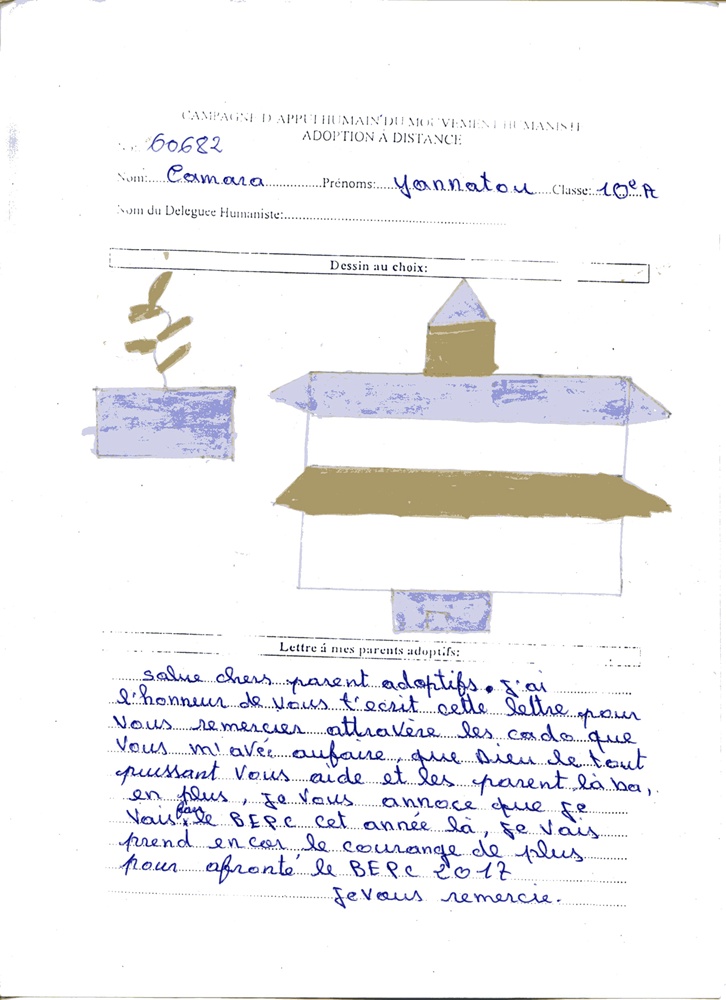 CAMPAGNE D'APPUI HUMAIN DU MOUVEMENT HUMANISTE
ADOPTION À DISTANCE
60682
Nom: Camara Prénoms: Yannatou Classe: 10e A
Nom du Deleguee Humaniste:
Dessin au choix:
Lettre á mes parents adoptifs:
salue chers parent adoptifs. J'ai
l'honneur de vous t'ecrit cette lettre pour
Vous remercier attravère les cado que
Vous m'avéz aufaire, que Dieu le tout
puissant Vous aide et les parent là ba,
en plus, Je Vous annoce que Je
Vais fair le BEPC cet année là, Je Vais
prend encor le courange de plus
pour afronté le BEPC 2017
Je Vous remercie.